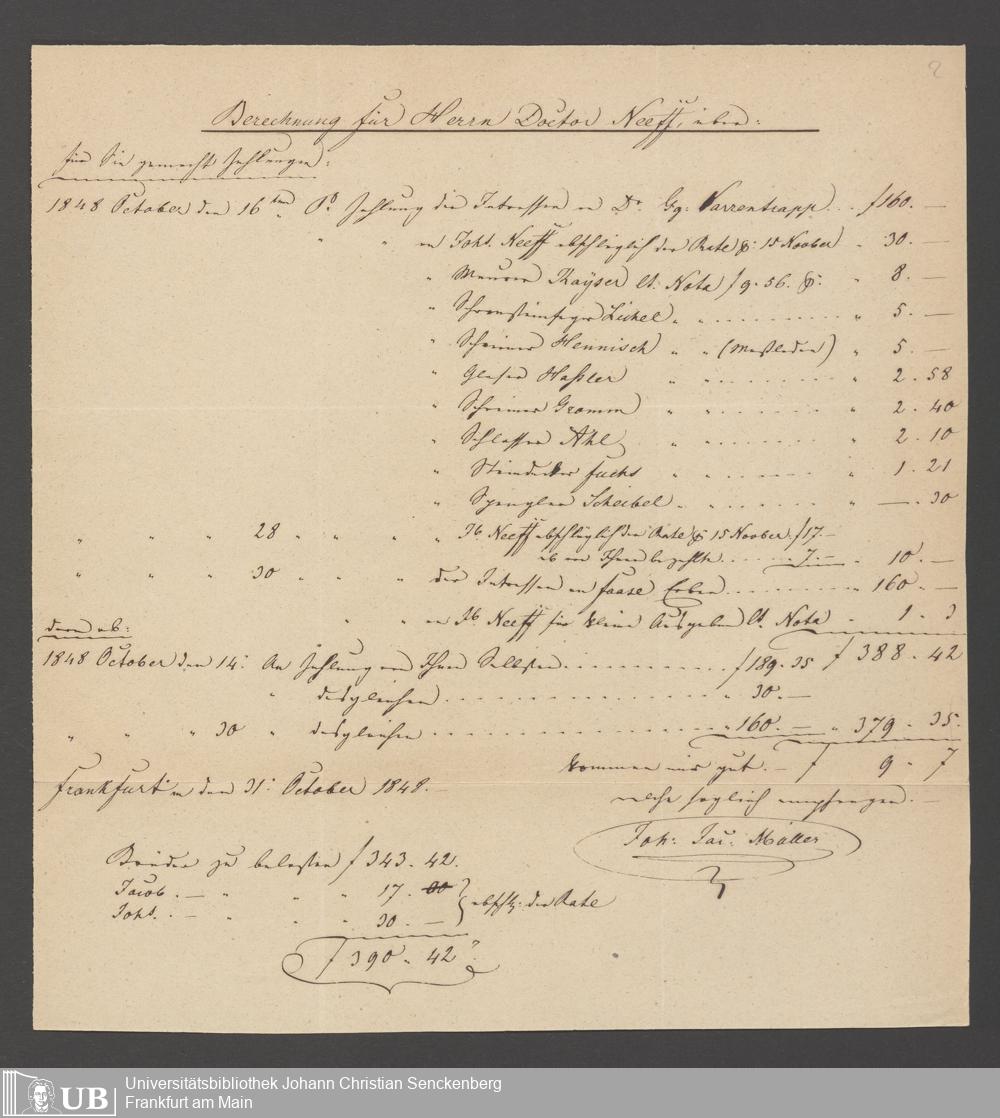 2
Berechnung für Herrn Doctor Neeff, über:
für Sie gemachte Zahlungen:
1848 October den 16ten Pr. Zahlung der Intressen an Dr. Gg. Varrentrapp . . f 160. —
" " an Johs. Neeff abschläglich der Rate p: 15 Novber " 30. —
" Maurer Kayser lt. Nota f 9. 56. p: " 8. —
" Schornsteinfeger Zickel " " . . . . . " 5. —
" Schreiner Hennisch " " (Meßladen) " 5. —
" Glaser Haßler " . . . . . " 2. 58
" Schreiner Gramm " " . . . . . " 2. 40
" Schlosser Ahl " . . . . . " 2. 10
" Steindecker Fuchs " . . . . . " 1. 21
" Spengler Scheibel " . . . . . " —. 30
" " " 28 " " " " Jb. Neeff abschläglich der Rate p 15 Novber f 17. —
ab von Ihnen bezahlte . . . . . 7. — " 10. —
" " " 30 " " " der Intressen an Haase Erben . . . . . " 160. —
" " an Jb Neeff für kleine Ausgaben lt. Nota " 1. 3
davon ab: f 388. 42
1848 October den 14: An Zahlung von Ihnen Selbsten . . . . . f 189. 35
" desgleichen . . . . . " 30. —
" " " 30 " desgleichen . . . . . " 160. — " 379. 35.
kommen mir gut. — f 9. 7
Frankfurt a/m den 31: October 1848. —
welche soglich empfangen. —
Joh: Jac: Müller
Brüder zu belasten f 343. 42.
Jacob. — " " " 17. } abschlg: der Rate
Johs. — " " " 30. —
f 390. 42
Universitätsbibliothek Johann Christian Senckenberg
UB
Frankfurt am Main